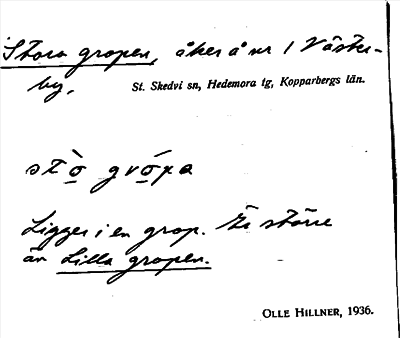 Stora gropen, åker å nr 1 Väster-
by,
St. Skedvi sn, Hedemora tg, Kopparbergs län.
stò̱ gró̱pa
Ligger i en grop. Är större
än Lilla gropen.
OLLE HILLNER, 1936.